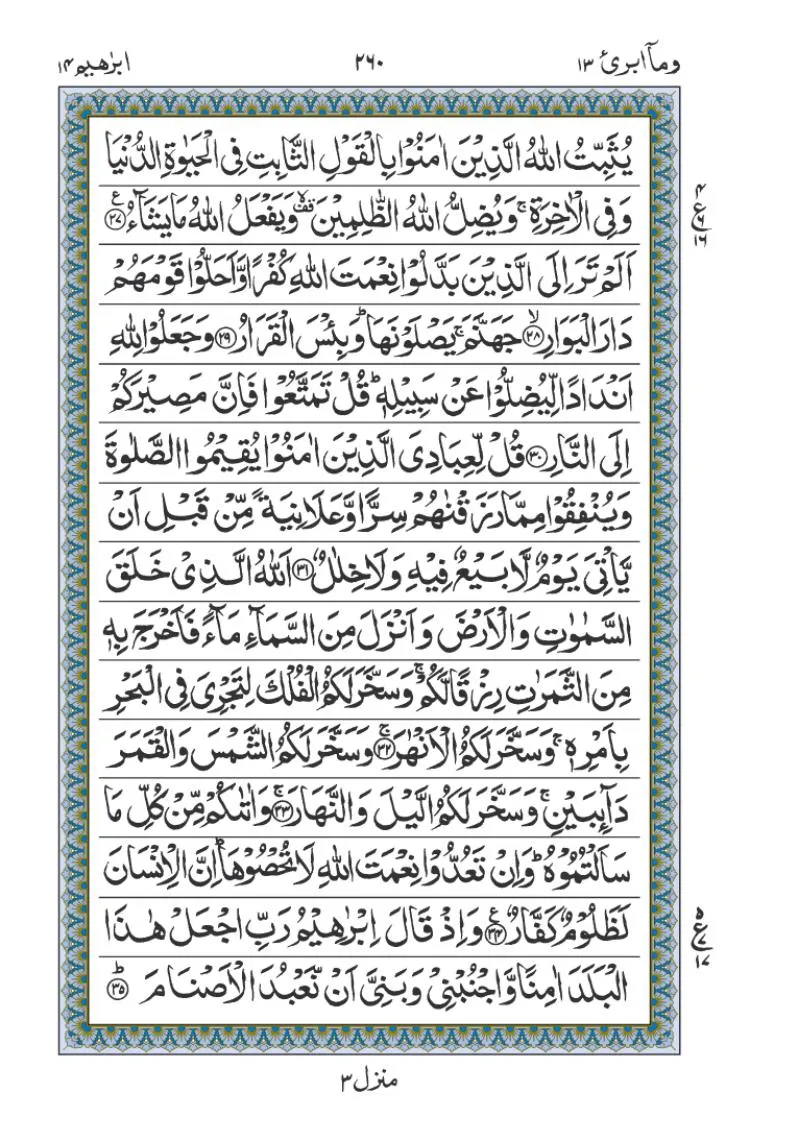 وما ابرئ ١٣ ٢٦٠ ابرٰهيم ١٤
يُثَبِّتُ اللّٰهُ الَّذِيۡنَ اٰمَنُوۡا بِالۡقَوۡلِ الثَّابِتِ فِى الۡحَيٰوةِ الدُّنۡيَا
وَفِى الۡاٰخِرَةِ‌ ۚ وَيُضِلُّ اللّٰهُ الظّٰلِمِيۡنَ‌ ۙ قف وَيَفۡعَلُ اللّٰهُ مَا يَشَآءُ ع ﴿۲۷﴾
اَلَمۡ تَرَ اِلَى الَّذِيۡنَ بَدَّلُوۡا نِعۡمَتَ اللّٰهِ كُفۡرًا وَّاَحَلُّوۡا قَوۡمَهُمۡ
دَارَ الۡبَوَارِۙ ﴿۲۸﴾ جَهَنَّمَ‌ ۚ يَصۡلَوۡنَهَا‌ؕ وَبِئۡسَ الۡقَرَارُ ﴿۲۹﴾ وَجَعَلُوۡا لِلّٰهِ
اَنۡدَادًا لِّيُضِلُّوۡا عَنۡ سَبِيۡلِهٖ‌ؕ قُلۡ تَمَتَّعُوۡا فَاِنَّ مَصِيۡرَكُمۡ
اِلَى النَّارِ ﴿۳۰﴾ قُلْ لِّعِبَادِىَ الَّذِيۡنَ اٰمَنُوۡا يُقِيۡمُوا الصَّلٰوةَ
وَيُنۡفِقُوۡا مِمَّا رَزَقۡنٰهُمۡ سِرًّا وَّعَلَانِيَةً مِّنۡ قَبۡلِ اَنۡ
يَّاۡتِىَ يَوۡمٌ لَّا بَيۡعٌ فِيۡهِ وَلَا خِلٰلٌ ﴿۳۱﴾ اَللّٰهُ الَّذِىۡ خَلَقَ
السَّمٰوٰتِ وَالۡاَرۡضَ وَاَنۡزَلَ مِنَ السَّمَآءِ مَآءً فَاَخۡرَجَ بِهٖ
مِنَ الثَّمَرٰتِ رِزۡقًا لَّكُمۡ‌ ۚ وَسَخَّرَ لَكُمُ الۡفُلۡكَ لِتَجۡرِىَ فِى الۡبَحۡرِ
بِاَمۡرِهٖ‌ۚ وَسَخَّرَ لَكُمُ الۡاَنۡهٰرَ‌ۚ ﴿۳۲﴾ وَسَخَّرَ لَكُمُ الشَّمۡسَ وَالۡقَمَرَ
دَآٮِٕبَيۡنِ‌ۚ وَسَخَّرَ لَكُمُ الَّيۡلَ وَالنَّهَارَ‌ۚ ﴿۳۳﴾ وَاٰتٰٮكُمۡ مِّنۡ كُلِّ مَا
سَاَلۡتُمُوۡهُ‌ؕ وَاِنۡ تَعُدُّوۡا نِعۡمَتَ اللّٰهِ لَا تُحۡصُوۡهَاؕ اِنَّ الۡاِنۡسَانَ
لَظَلُوۡمٌ كَفَّارٌ ع ﴿۳۴﴾ وَاِذۡ قَالَ اِبۡرٰهِيۡمُ رَبِّ اجۡعَلۡ هٰذَا
الۡبَلَدَ اٰمِنًا وَّاجۡنُبۡنِىۡ وَبَنِىَّ اَنۡ نَّعۡبُدَ الۡاَصۡنَامَؕ ﴿۳۵﴾
٤ ع ٦ ١٦
٥ ع ٧ ١٧
منزل ٣